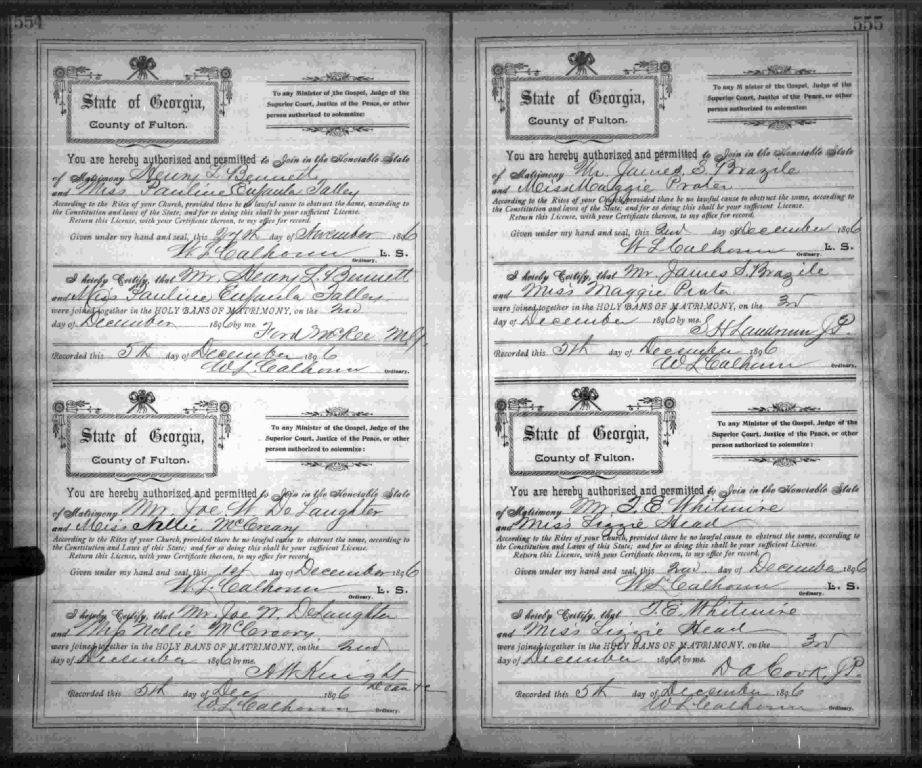 554
State of Georgia,
County of Fulton.
To any Minister of the Gospel, Judge of the
Superior Court, Justice of the Peace, or other
person authorized to solemnize:
You are hereby authorized and permitted to Join in the Honorable State
of Matrimony Henry L Bennett
and Miss Pauline Eufaula Talley
According to the Rites of your Church, provided there be no lawful cause to obstruct the same, according to
the Constitution and laws of the State; and for so doing this shall be your sufficient License.
Return this License, with your Certificate thereon, to my office for record.
Given under my hand and seal, this 27th day of November 1896
W. L. Calhoun L. S.
Ordinary.
I hereby Certify, that Mr. Henry L. Bennett
and Miss Pauline Eufaula Talley
were joined together in the HOLY BANS OF MATRIMONY, on the 2nd
day of December 1896 by me.
Ford McRee M.G.
Recorded this 5th day of December 1896
W. L. Calhoun Ordinary.
State of Georgia,
County of Fulton.
To any Minister of the Gospel, Judge of the
Superior Court, Justice of the Peace, or other
person authorized to solemnize:
You are hereby authorized and permitted to Join in the Honorable State
of Matrimony Mr. Joe W. DeLaughter
and Miss Nellie McCreary
According to the Rites of your Church, provided there be no lawful cause to obstruct the same, according to
the Constitution and Laws of this State; and for so doing this shall be your sufficient License.
Return this License, with your Certificate thereon, to my office for record.
Given under my hand and seal, this 1st day of December 1896
W. L. Calhoun L. S.
Ordinary.
I hereby Certify, that Mr. Joe W. DeLaughter
and Miss Nellie McCreary
were joined together in the HOLY BANS OF MATRIMONY, on the 2nd
day of December 1896 by me.
A W Knight
Recorded this 5th day of Dec 1896
W. L. Calhoun Ordinary.
555
State of Georgia,
County of Fulton.
To any Minister of the Gospel, Judge of the
Superior Court, Justice of the Peace, or other
person authorized to solemnize:
You are hereby authorized and permitted to Join in the Honorable State
of Matrimony Mr. James S. Brazile
and Miss Maggie Prater
According to the Rites of your Church, provided there be no lawful cause to obstruct the same, according to
the Constitution and laws of the State; and for so doing this shall be your sufficient License.
Return this License, with your Certificate thereon, to my office for record.
Given under my hand and seal, this 2nd day of December 1896
W. L. Calhoun L. S.
Ordinary.
I hereby Certify, that Mr. James S. Brazile
and Miss Maggie Prater
were joined together in the HOLY BANS OF MATRIMONY, on the 3rd
day of December 1896 by me.
S H Landrum J.P.
Recorded this 5th day of December 1896
W. L. Calhoun Ordinary.
State of Georgia,
County of Fulton.
To any Minister of the Gospel, Judge of the
Superior Court, Justice of the Peace, or other
person authorized to solemnize:
You are hereby authorized and permitted to Join in the Honorable State
of Matrimony Mr. T. E. Whitmire
and Miss Lizzie Head
According to the Rites of your Church, provided there be no lawful cause to obstruct the same, according to
the Constitution and Laws of this State; and for so doing this shall be your sufficient License.
Return this License, with your Certificate thereon, to my office for record.
Given under my hand and seal, this 2nd day of December 1896
W. L. Calhoun L. S.
Ordinary.
I hereby Certify, that T. E. Whitmire
and Miss Lizzie Head
were joined together in the HOLY BANS OF MATRIMONY, on the 3rd
day of December 1896 by me.
D A Cook, J.P.
Recorded this 5th day of December 1896
W. L. Calhoun Ordinary.